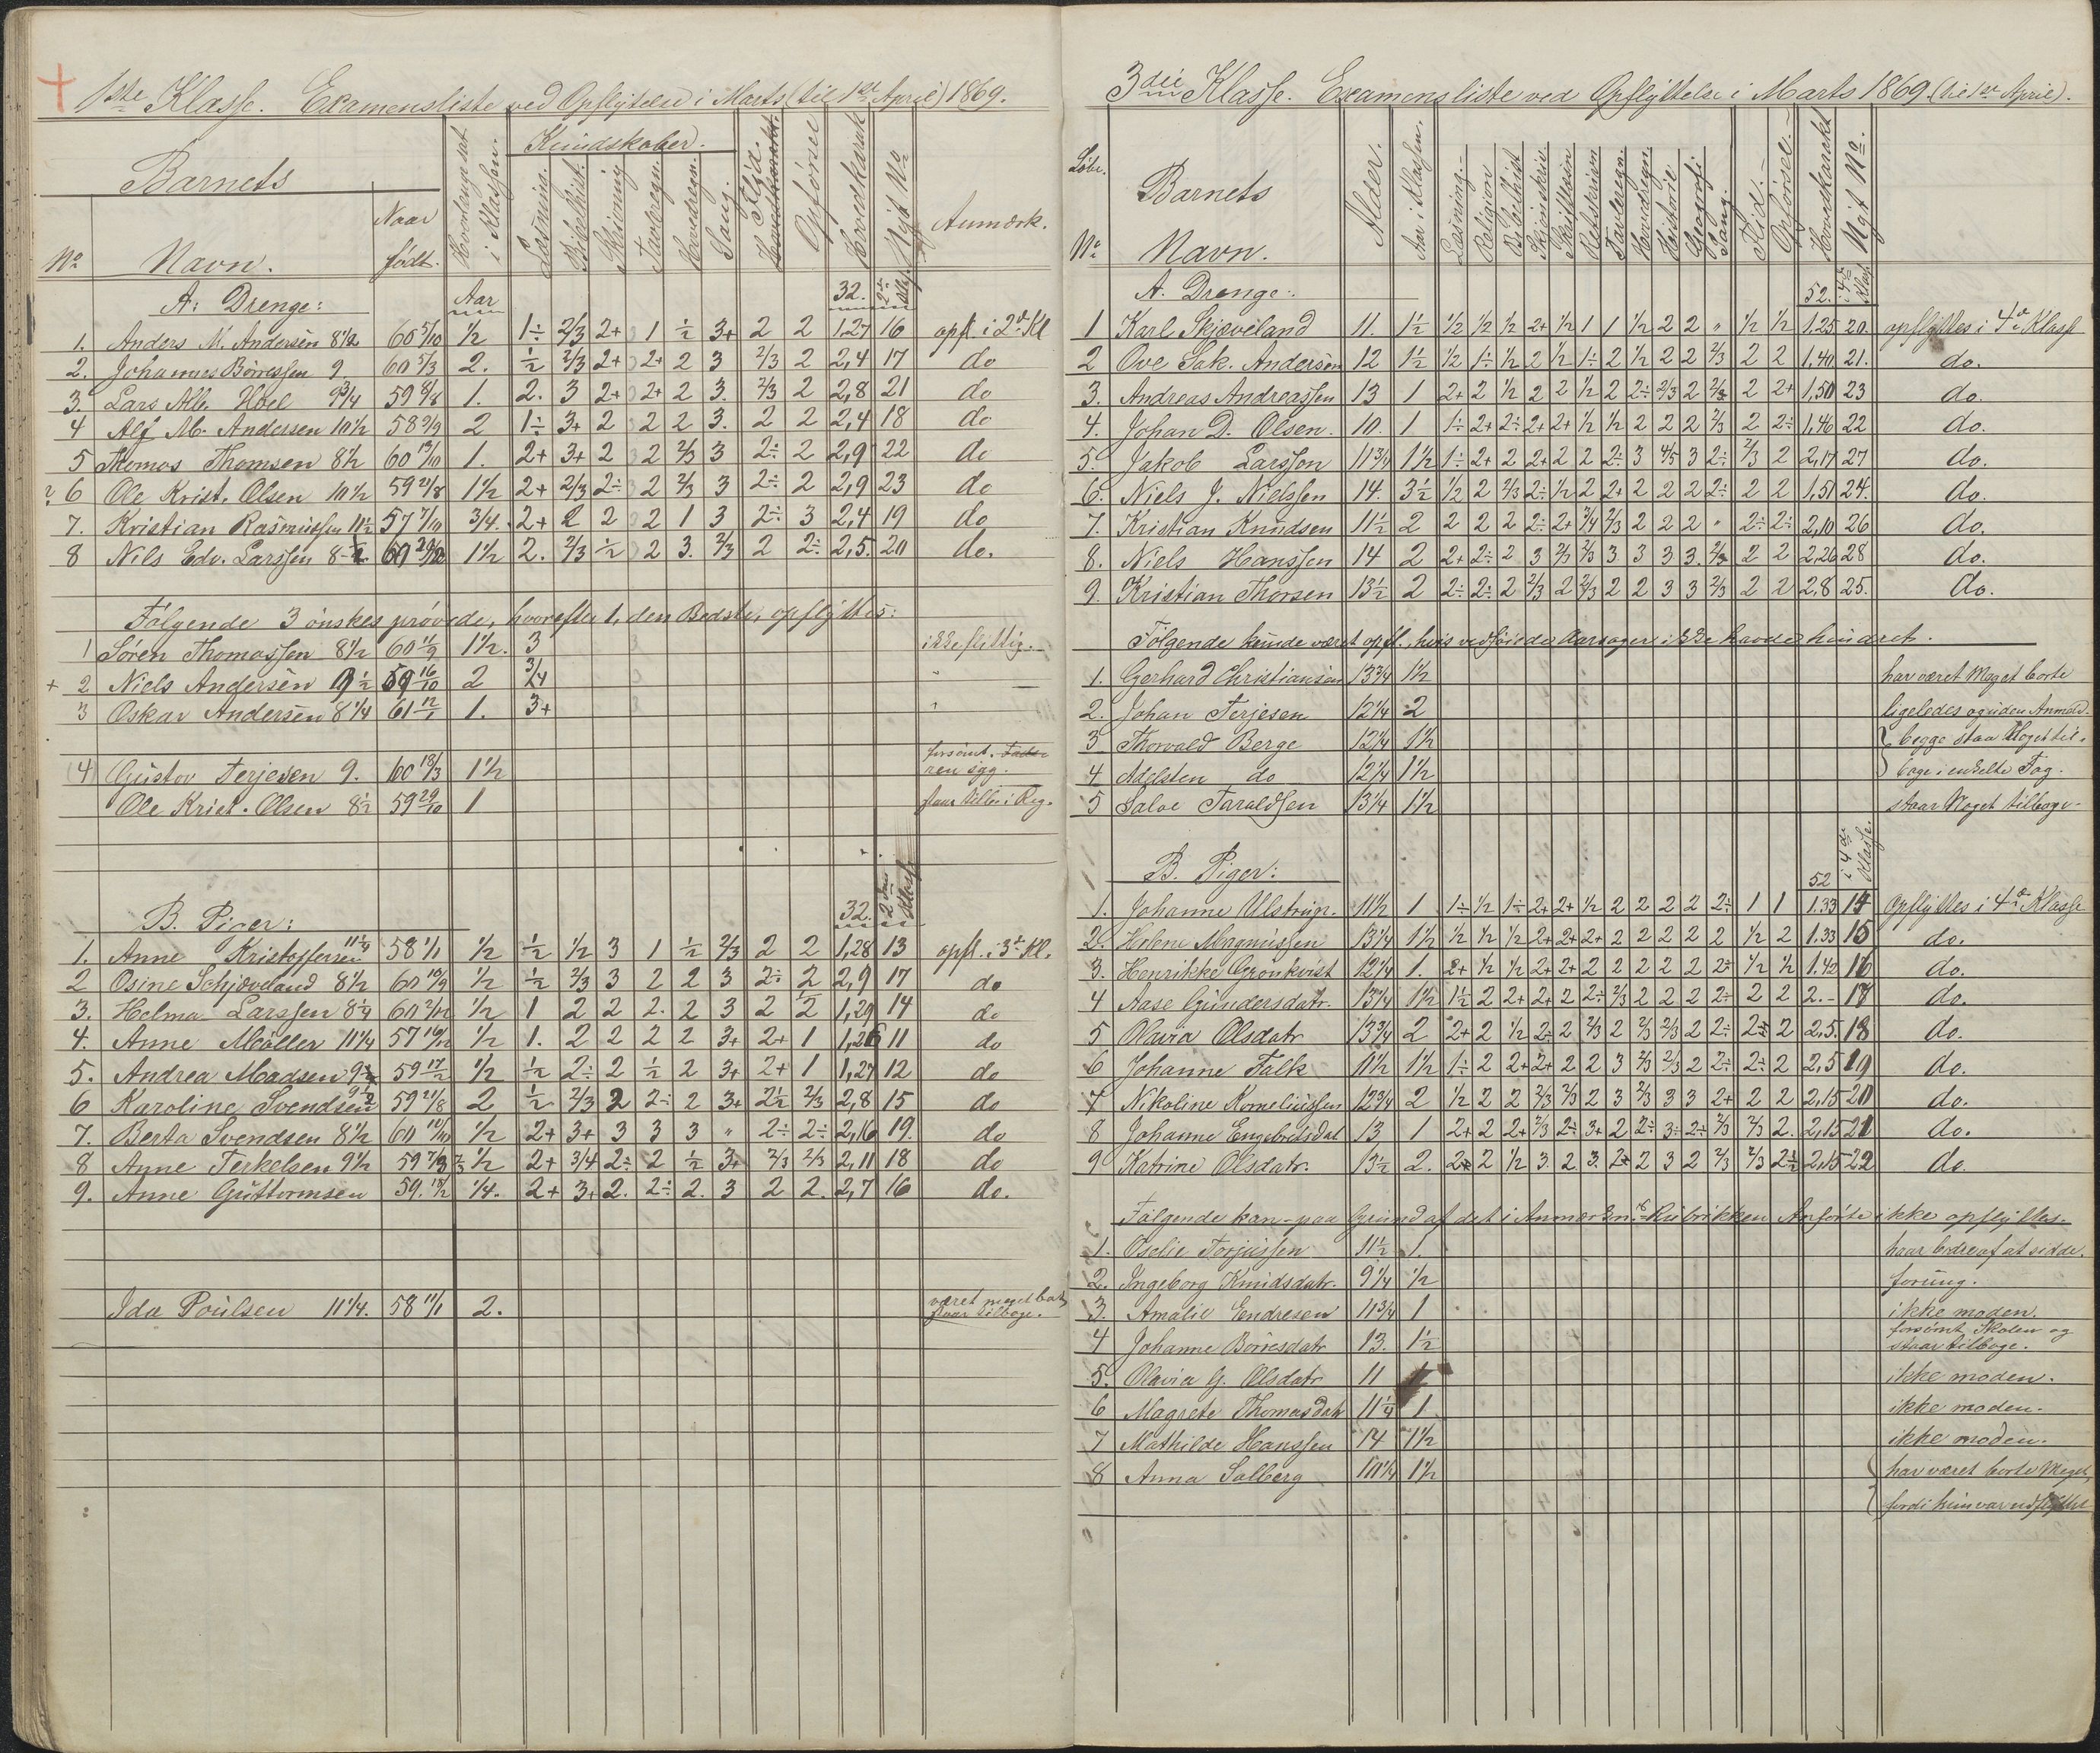 1ste Klasse. Examensliste ved Opflyttelse i Marts (til 1ste April) 1869.
Barnets
Kundskaber.
No Navn. Naar født. Hvorlænge sat i Klassen. Læsning. Bibelhist. Skrivning Tavleregn. Hovedregn. Sang. Flid. Opførsel Hovedkarak Nyt No Anmærk.
A: Drenge: Aar 32. 2den Klas.
1. Anders M. Andersen 8½ 60 5/10 ½ 1÷ 2/3 2+ 1 ½ 3+ 2 2 1,27 16 opfl. i 2d Kl
2. Johannes Börresen 9 60 5/3 2. ½ 2/3 2+ 2+ 2 3 2/3 2 2,4 17 do
3. Lars Alb. Hoel 9¾ 59 8/8 1. 2. 3 2+ 2+ 2 3. 2/3 2 2,8 21 do
4 Alf M. Andersen 10½ 58 2/9 2 1÷ 3+ 2 2 2 3. 2 2 2,4 18 do
5 Thomas Thomsen 8½ 60 13/10 1. 2+ 3+ 2 2 2/3 3 2÷ 2 2,9 22 do
? 6 Ole Krist. Olsen 10½ 59 21/8 1½ 2+ 2/3 2÷ 2 2/3 3 2÷ 2 2,9 23 do
7. Kristian Rasmussen 11½ 57 7/10 3/4. 2+ 2 2 2 1 3 2÷ 3 2,4 19 do
8 Nils Edv. Larssen 8 1½ 2. 2/3 ½ 2 3. 2/3 2 2÷ 2,5. 20 do.
Følgende 3 ønskes prøvede, hvorefter 1, den Bedste, opflyttes:
1 Sören Thomassen 8½ 60 1½. 3 ikke flittig.
+ 2 Niels Andersen 9½ 59 16/10 2 3/4 "
3 Oskar Andersen 8¼ 61 12/1 1. 3+ "
4 Gustav Terjesen 9. 60 18/3 1½ forsömt.
ren syg.
Ole Krist. Olsen 8½ 59 29/10 1 staar tilb. i Reg.
B. Piger: 32. 2den Klasse
1. Anne Kristoffersen 11¼ 58 1/1 ½ ½ ½ 3 1 ½ 2/3 2 2 1,28 13 opfl. i 3d Kl.
2 Osine Schjøveland 8½ 60 10/9 ½ ½ 2/3 3 2 2 3 2÷ 2 2,9 17 do
3. Helma Larssen 8¼ 60 ½ 1 2 2 2. 2 3 2 2 1,29 14 do
4. Anne Möller 11¼ 57 ½ 1. 2 2 2 2 3+ 2+ 1 1,26 11 do
5. Andrea Madsen 9½ 59 17/2 ½ ½ 2÷ 2 ½ 2 3+ 2+ 1 1,27 12 do
6 Karoline Svendsen 9½ 59 21/8 2 ½ 2/3 2 2÷ 2 3+ 2½ 2/3 2,8 15 do
7. Berta Svendsen 8½ 60 ½ 2+ 3+ 3 3 3 " 2÷ 2÷ 2,16 19. do
8 Anne Terkelsen 9½ 59 7/9 ½ 2+ 3/4 2÷ 2 ½ 3+ 2/3 2/3 2,11 18 do
9. Anne Guttormsen 59. ¼. 2+ 3+ 2. 2÷ 2. 3 2 2. 2,7 16 do.
Ida Poulsen 11¼. 58 11/1 2. været meget bort
staar tilbage.
3die Klasse. Examensliste ved Opflyttelse i Marts 1869. (til 1ste April).
Löbe. No Barnets Navn. Alder. Aar i Klassen. Læsning. Religion Bibelhist Skrivning Retskrivn Tavleregn. Hovedregn. Historie Geografi Sang. Flid. Opførsel. Hovedkarakt Nyt No.
A. Drenge. 52. i 4de Klas.
1 Karl Skjæveland 11. 1½ ½ ½ ½ 2+ ½ 1 1 ½ 2 2 " ½ ½ 1.25 20. opflyttes i 4de Klass
2 Ove Sak. Andersen 12 1½ ½ 1÷ ½ 2 ½ 1÷ 2 ½ 2 2 2/3 2 2 1,40. 21. do.
3. Andreas Andreassen 13 1 2+ 2 ½ 2 2 ½ 2 2÷ 2/3 2 2/3 2 2+ 1,50 23 do.
4. Johan D. Olsen. 10. 1 1÷ 2+ 2÷ 2+ 2+ ½ ½ 2 2 2 2/3 2 2÷ 1,46 22 do.
5. Jakob Larsson 11¾ 1½ 1÷ 2+ 2 2+ 2 2 2÷ 3 4/5 3 2÷ 2/3 2 2,17 27 do.
6. Niels J. Nielssen 14. 3½ ½ 2 2/3 2÷ ½ 2 2+ 2 2 2 2÷ 2 2 1,51 24. do.
7. Kristian Knudsen 11½ 2 2 2 2 2÷ 2+ 3/4 2/3 2 2 2 " 2÷ 2÷ 2,10 26 do.
8. Niels Hanssen 14 2 2+ 2÷ 2 3 2/3 2/3 3 3 3 3. 2/3 2 2 2,26 28 do.
9. Kristian Thorsen 13½ 2 2÷ 2÷ 2 2/3 2 2/3 2 2 3 3 2/3 2 2 2,8 25. do.
Følgende kunde været opfl., hvis vedføiede Aarsager ikke havde hindret.
1. Gerhard Christiansen 13¾ 1½ har været Meget borte
2. Johan Terjesen 12¼ 2 ligeledes og uden Anmeld.
3 Thorvald Berge 12¼ 1½ begge staa Noget til-
4 Adelsten do 12¼ 1½ bage i enkelte Fag.
5 Salve Taraldsen 13¼ 1½ staar Noget tilbage-
B. Piger: 52 i 4de Klasse.
1. Johanne Ulstrup. 11½ 1 1÷ ½ 1÷ 2+ 2+ ½ 2 2 2 2 2÷ 1 1 1.33 14 Opflyttes i 4de Klasse
2. Helene Magnussen 13¼ 1½ ½ ½ ½ 2+ 2+ 2+ 2 2 2 2 2 ½ 2 1.33 15 do.
3. Henrikke Grönkvist 12¼ 1. 2+ ½ ½ 2+ 2+ 2 2 2 2 2 2÷ ½ ½ 1.42 16 do.
4 Aase Gundersdatr. 13¼ 1½ 1½ 2 2+ 2+ 2 2÷ 2/3 2 2 2 2÷ 2 2 2.- 17 do.
5 Olava Olsdatr 13¾ 2 2+ 2 ½ 2÷ 2 2/3 2 2/3 2/3 2 2÷ 2÷ 2 2,5. 18 do.
6 Johanne Falk 11½ 1½ 1÷ 2 2+ 2+ 2 2 3 2/3 2/3 2 2÷ 2÷ 2 2,5 19 do.
7 Nikoline Korneliussen 12¾ 2 ½ 2 2 2/3 2/3 2 3 2/3 3 3 2+ 2 2 2,15 20 do.
8 Johanne Engebretsdat 13 1 2+ 2 2+ 2/3 2÷ 3+ 2 2÷ 3÷ 2÷ 2/3 2/3 2. 2,15 21 do.
9 Katrine Olsdatr. 13½ 2. 2+ 2 ½ 3. 2 3. 2+ 2 3 2 2/3 2/3 2½ 2,15 22 do.
Følgende kan - paa Grund af det i Anmærkn. Rubrikken Anførte ikke opflyttes.
1. Oselie Torjussen 11½ 1. haar bedre af at sidde.
2. Ingeborg Knudsdatr. 9¼ ½ for ung.
3. Amalie Endresen 11¾ 1 ikke moden.
4 Johanne Börresdatr 13. 1½ forsömt Skolen og
staar tilbage.
5. Olavia G. Olsdatr 11 ikke moden.
6 Magrete Thomasdatr 11¼ 1 ikke moden.
7 Mathilde Hanssen 14 1½ ikke moden.
8 Anna Solberg 1½ har været borte Meget,
fordi hun var udflyttet